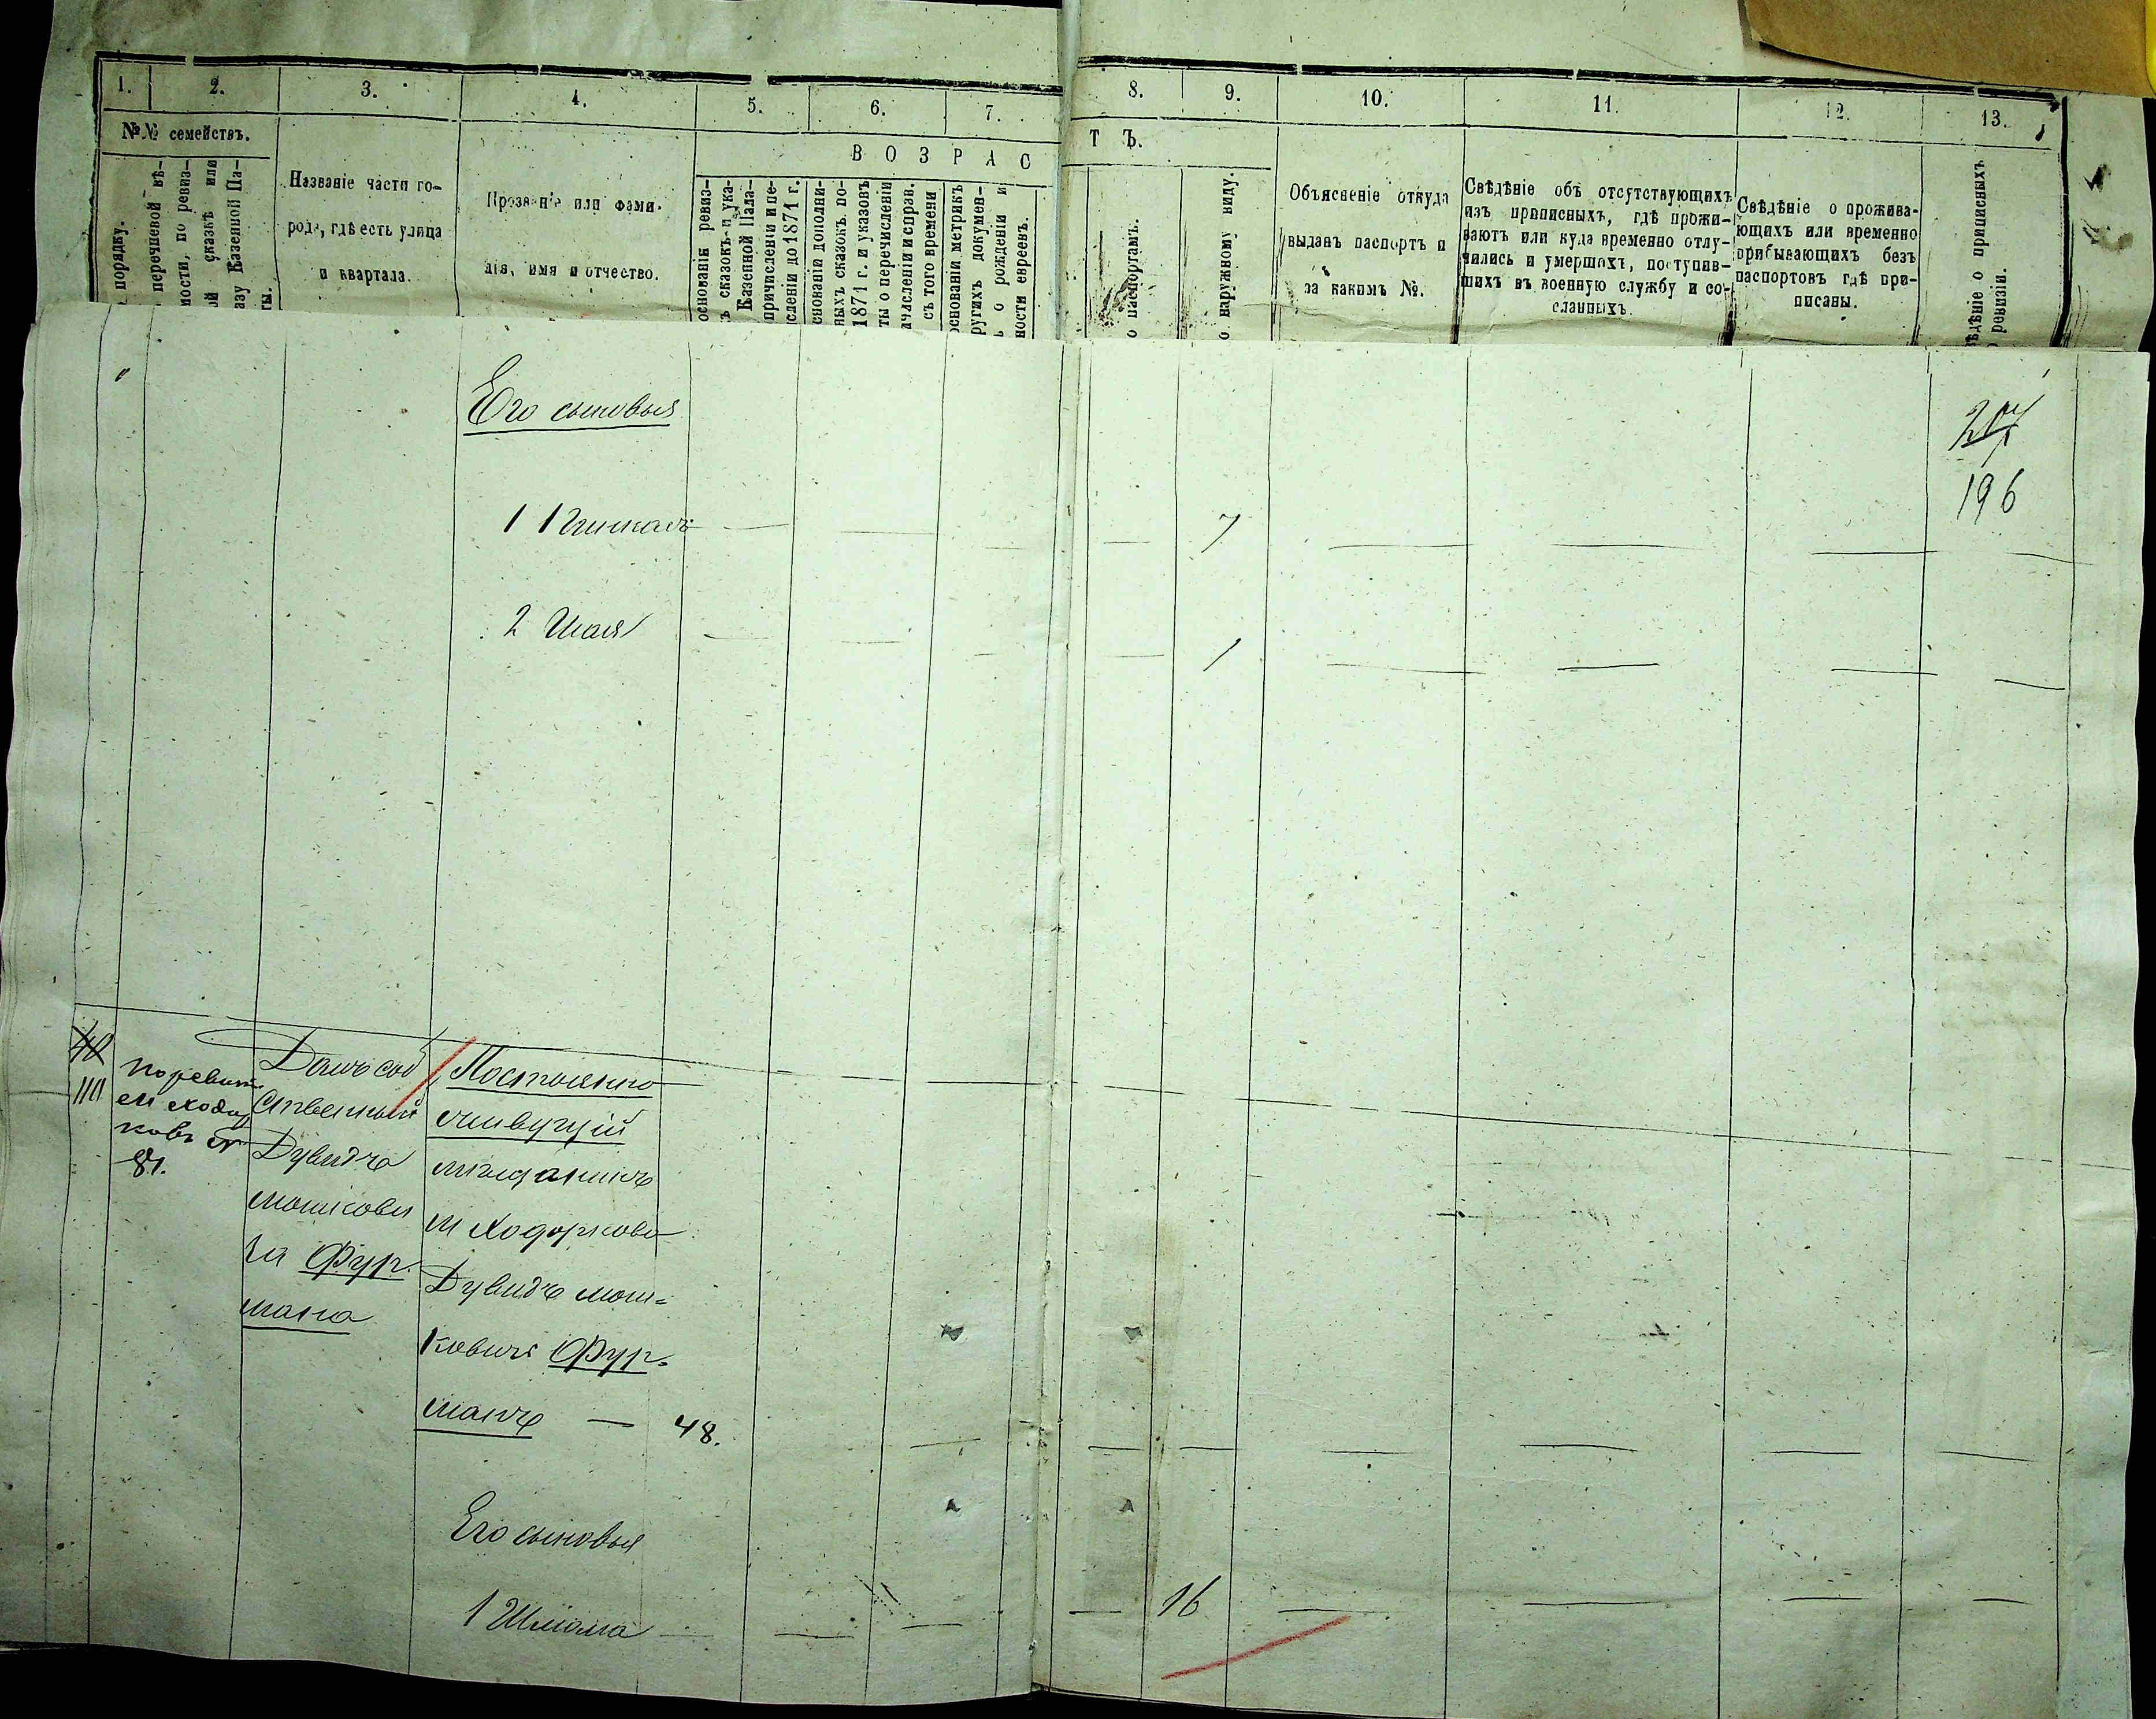 1.
2.
3.
4.
5.
6.
7.
8.
9.
10.
11.
12.
13.
№№ семействъ.
порядку.
перечневой вѣ-
мости, по ревиз-
ой сказкѣ или
азу Казенной Па-
ты.
Названіе части го-
рода, гдѣ есть улица
и квартала.
Прозваніе или фами-
лія, имя и отчество.
ВОЗРАС
ТЪ.
основаніи ревиз-
ъ сказокъ и ука-
Казенной Пала-
причисленіи и пе-
сленіи до 1871 г.
снованіи дополни-
ныхъ сказокъ по-
1871 г. и указовъ
ты о перечисленіи
ичисленіи и справ.
съ того времени
основаніи метрикъ
ругихъ докумен-
ъ о рожденіи и
ности евреевъ.
о паспортамъ.
о наружному виду.
Объясненіе откуда
выданъ паспортъ и
за какимъ №.
Свѣдѣніе объ отсутствующихъ
изъ приписныхъ, гдѣ прожи-
ваютъ или куда временно отлу-
чились и умершихъ, поступив-
шихъ въ военную службу и со-
сланныхъ.
Свѣдѣніе о прожива-
ющихъ или временно
прибывающихъ безъ
паспортовъ гдѣ при-
писаны.
ѣдѣніе о приписныхъ
ревизіи.
Его сыновья
196
1 — — — — 7 — — — —
2 Шая — — — — 1 — — — —
110
по ревизіи
м Ходор
ковъ №
81.
Домъ соб
ственный
Дувидъ
Мошкови
ча Фур-
мана
Постоянно
живущій
мѣщанинъ
м Ходоркова
Дувидъ Мош=
ковичъ Фур-
манъ — 48. — — — — — — —
Его сыновья
1 Шлиома — — — — 16 — — — —